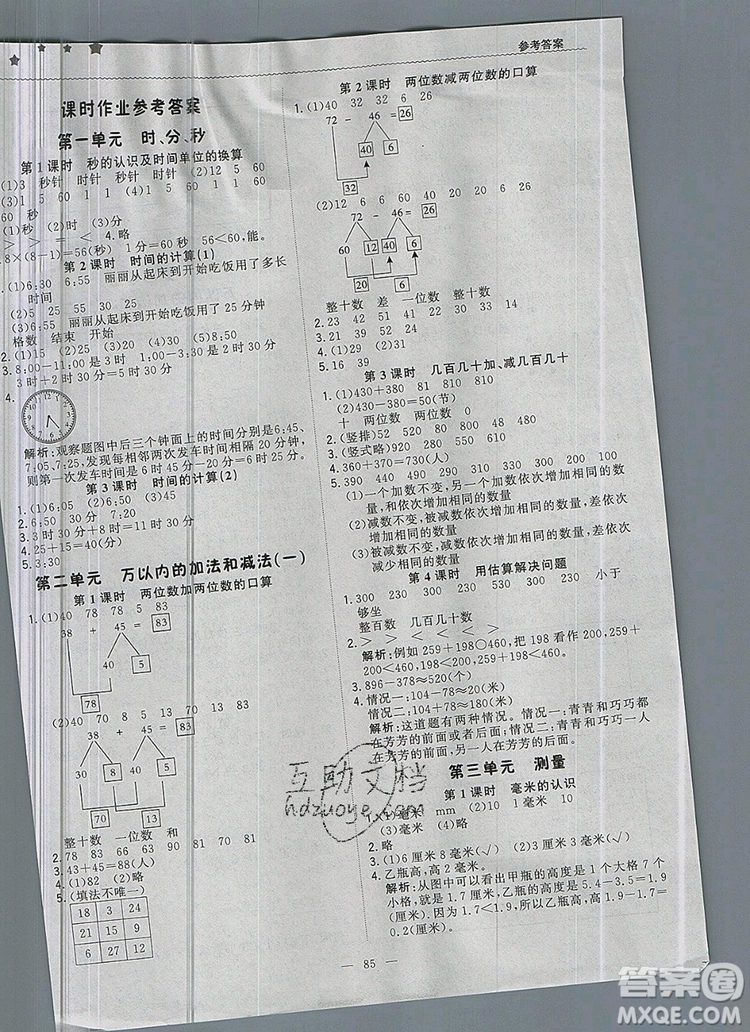 参考答案
课时作业参考答案
第一单元 时、分、秒
第1课时 秒的认识及时间单位的换算
(1)3 秒针 时针 秒针 时针 (2)12 5 60
(3)5 60 1 1 (4)1 5 60 1 1 60
60 秒
(1)秒 (2)时 (3)分
> > = < 4.略
8×(8-1)=56(秒) 1分=60秒 56<60,能。
第2课时 时间的计算(1)
1.(1)6:30 6:55 丽丽从起床到开始吃饭用了多长
时间
(2)5 25 55 30 25
(3)6:55 丽丽从起床到开始吃饭用了 25 分钟
格数 结束 开始
2.(1)15 (2)25 (3)20 (4)50
3.8:00-11:00是3时 1时30分+1时30分=
3时 2时+3时30分=5时30分
4.
解析:观察题图中后三个钟面上的时间分别是6:45、
7:05、7:25,发现每相邻两次发车时间相隔 20 分钟,
则第一次发车时间是 6 时 45 分-20 分=6 时 25 分。
第3课时 时间的计算(2)
1.(1)6:05 (2)6:50 (3)45
2.6:50 30 7:20
3.< > > <
4.25+15=40(分)
5.3:30
第二单元 万以内的加法和减法(一)
第1课时 两位数加两位数的口算
1.(1)40 78 78 5 83
38 + 45 = 83
40 5
78
(2)40 70 8 5 13 70 13 83
38 + 45 = 83
30 8 40 5
70 13
整十数 一位数 和
2.78 83 66 63 90 91 83 87
3.43+45=88(人)
4.(1)82 (2)略
5.(填法不唯一)
18 3 24
21 15 9
6 27 12
第2课时 两位数减两位数的口算
1.(1)40 32 32 6 26
72 - 46 = 26
40 6
32
(2)12 6 6 60 40 20 20 6 26
72 - 46 = 26
60 12 40 6
20 6
整十数 差 一位数 整十数 差
2.37 42 38 39 28 27 25 34
3.21 39 52 34
4.(1)29 (2)51
5.16 39
第3课时 几百几十加、减几百几十
1.(1)430+380 81 810 810
(2)430-380=50(节)
十 两位数 两位数 0
2.(竖排)52 520 80 800 48 480
3.(竖式略)920 320 640 450
4.360+370=730(人)
5.390 440 490 430 380 330 290 240
(1)一个加数不变,另一个加数依次增加相同的数
量,和依次增加相同的数量
(2)减数不变,被减数依次增加相同的数量,差依次
增加相同的数量
(3)被减数不变,减数依次增加相同的数量,差依次
减少相同的数量
第4课时 用估算解决问题
1.300 230 300 230 530 230 小于
够坐
整百数 几百几十数
2.> > < < > < < <
解析:例如 259+198○460,把 198 看作 200,
259+200=459,459<460,因为 259+198<259+
200<460,所以 259+198<460。
3.896-378≈520(米)
4.情况一:104-78≈20(米)
情况二:104+78≈180(米)
解析:这道题有两种情况。情况一:青青和巧巧都
在芳芳的前面或后面;情况二:青青和巧巧有一
人在芳芳的前面,另一人在芳芳的后面。
第三单元 测量
第1课时 毫米的认识
1.(1)毫米 mm (2)10 1毫米 10
(3)毫米 (4)略
2.略
3.(1)6厘米8毫米(√) (2)3厘米6毫米(√)
4.乙瓶高,高2毫米
解析:从图可以看出甲瓶的高度是1个大格7个
小格,就是1.7厘米,乙瓶的高度是 5.4-3.5=1.9
(厘米)。因为1.7<1.9,所以乙瓶高,高1.9-1.7=
0.2(厘米)。
— 85 —
互助文档
hdzuoye.com
答案圈
MXQE.COM